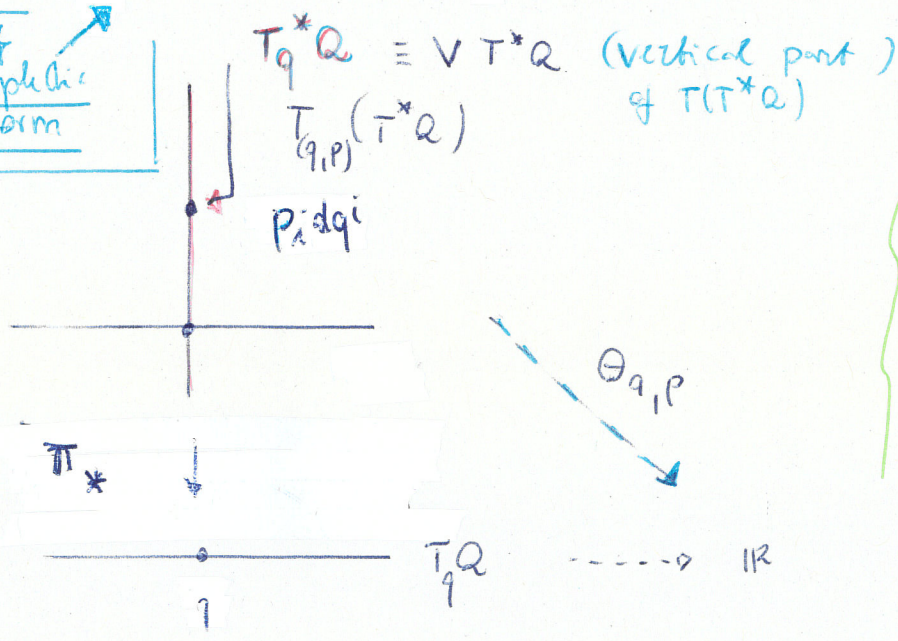 T*_q Q ≡ V T*Q (vertical part)
of T(T*Q)
T_(q,p)(T*Q)
p_i dq^i
θ_q,p
π_*
T_q Q -----> IR
q